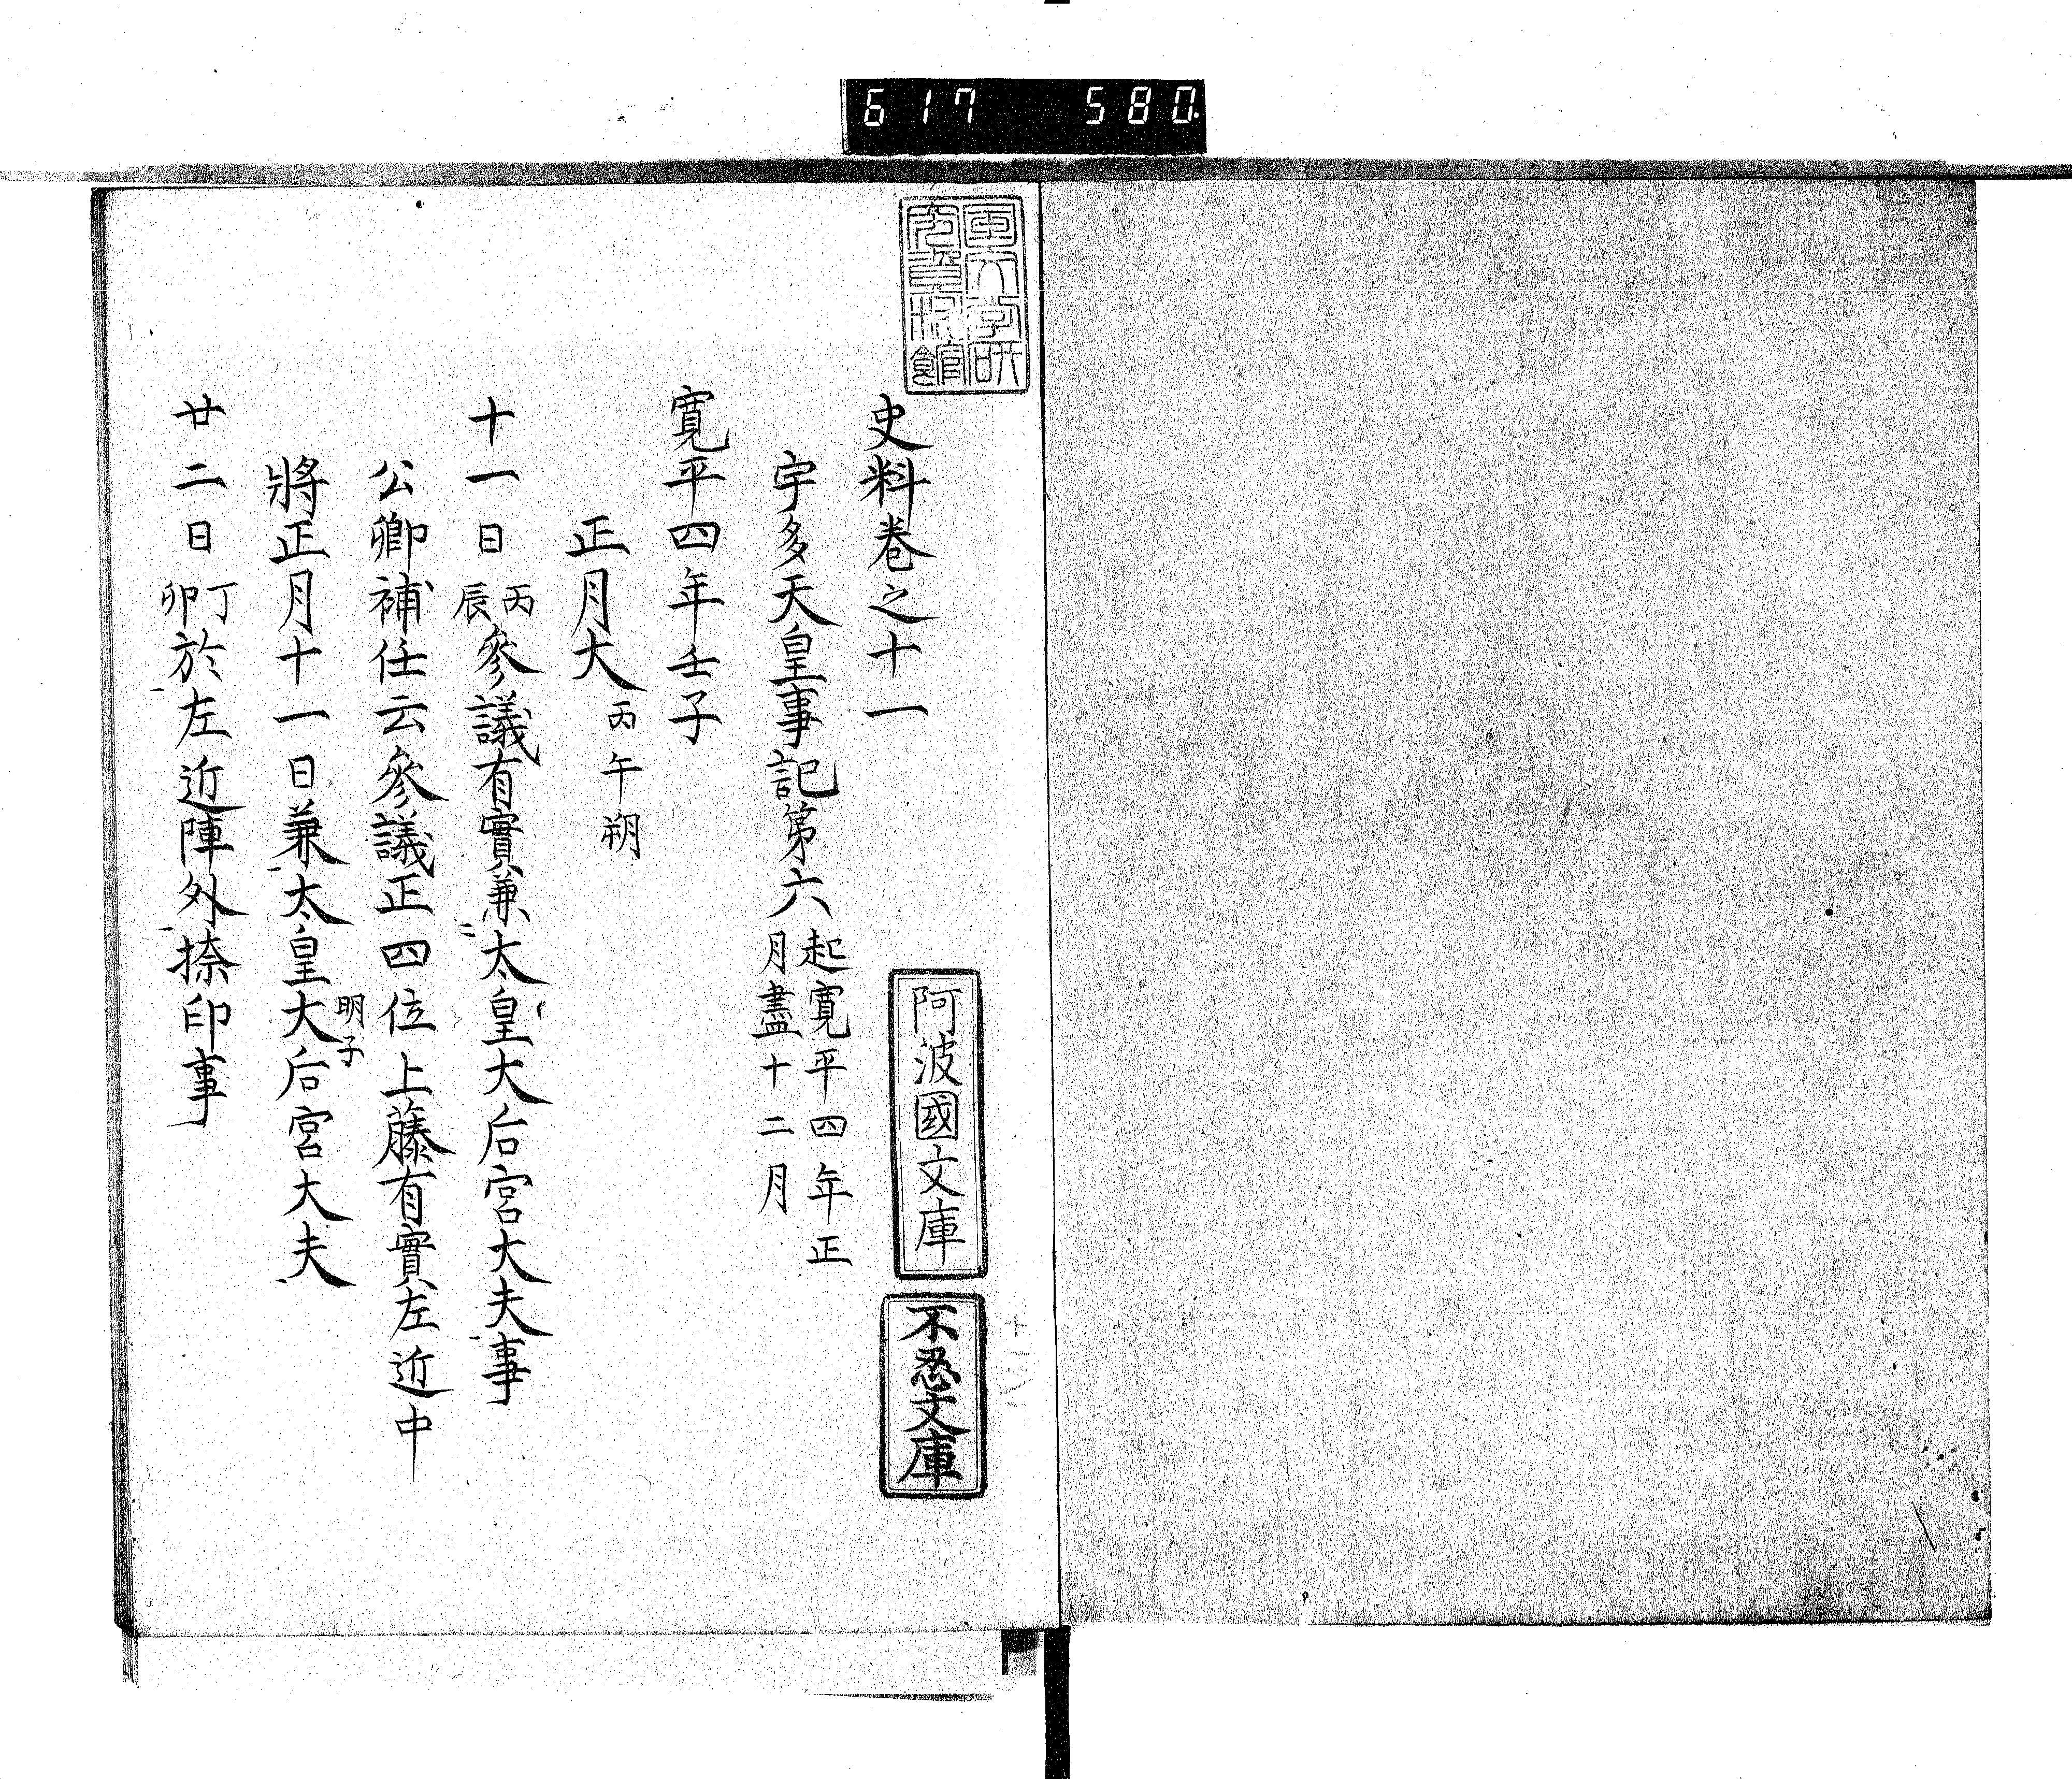 617 580
史料卷之十一
宇多天皇事記第六 起寛平四年正月盡十二月
寛平四年壬子
正月大 丙午朔
十一日 丙辰 參議有實兼太皇大后宮大夫事
公卿補任云參議正四位上藤有實左近中
將正月十一日兼太皇大后宮大夫
明子
廿二日 丁卯 於左近陣外捺印事
阿波國文庫
不忍文庫